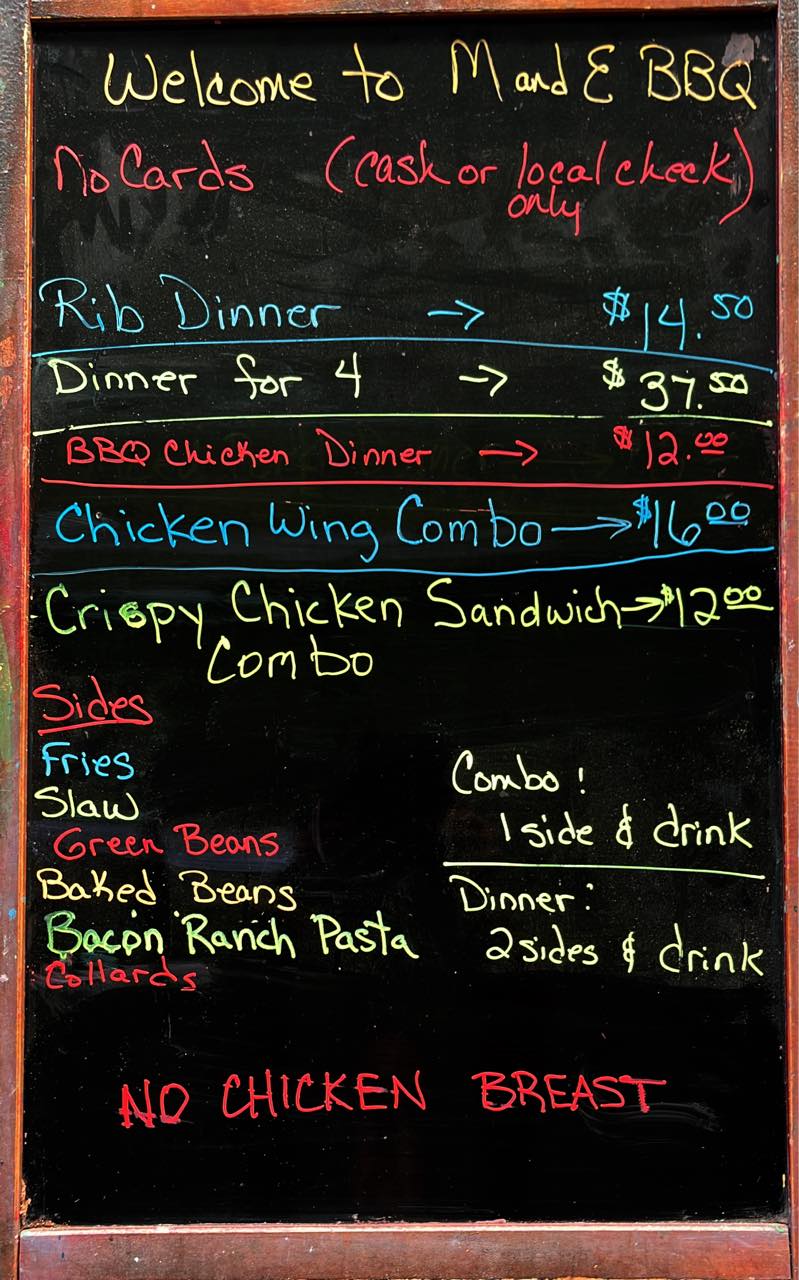 Welcome to M and E BBQ
No Cards (cash or local check)
only
Rib Dinner → $14.50
Dinner for 4 → $37.50
BBQ Chicken Dinner → $12.00
Chicken Wing Combo → $16.00
Crispy Chicken Sandwich → $12.00
Combo
Sides
Fries
Slaw
Green Beans
Baked Beans
Bacon Ranch Pasta
Collards
Combo!
1 side & drink
Dinner:
2 sides & drink
NO CHICKEN BREAST